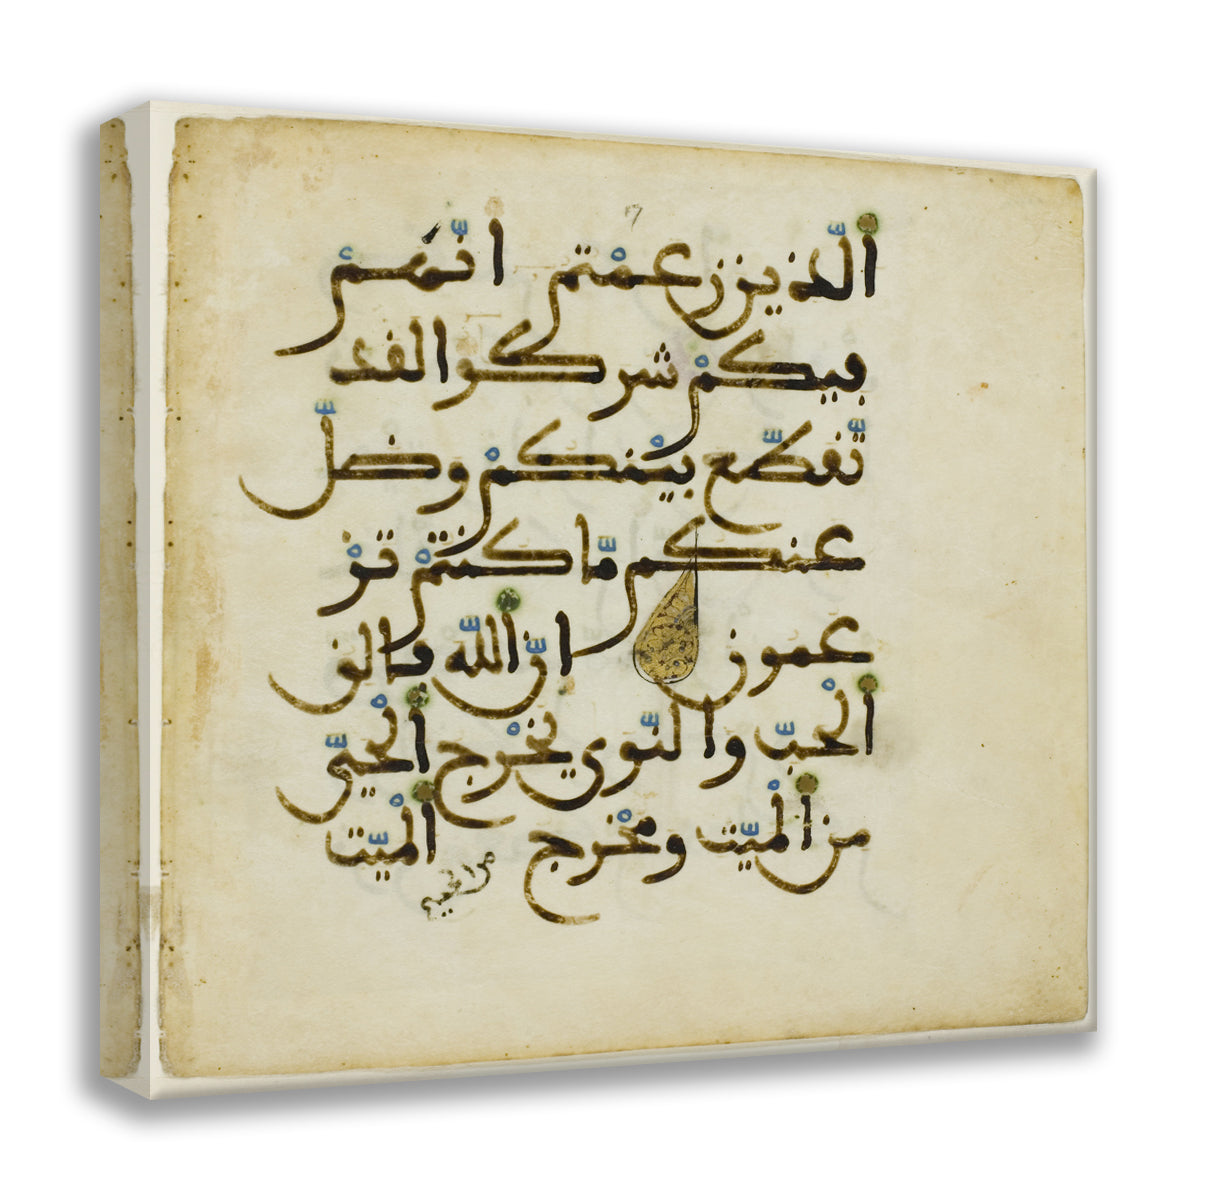 الّذين زعمْتم انّهمْ
فيكمْ شركوا لقد
تّقطّع بيْنكمْ وضلّ
عنكم مّا كنتمْ تزْ
عمون انّ اللّه فالق
الْحبّ والنّوى يخْرج الْحيّ
من الْميّت ومخْرج الْميّت
من الحي